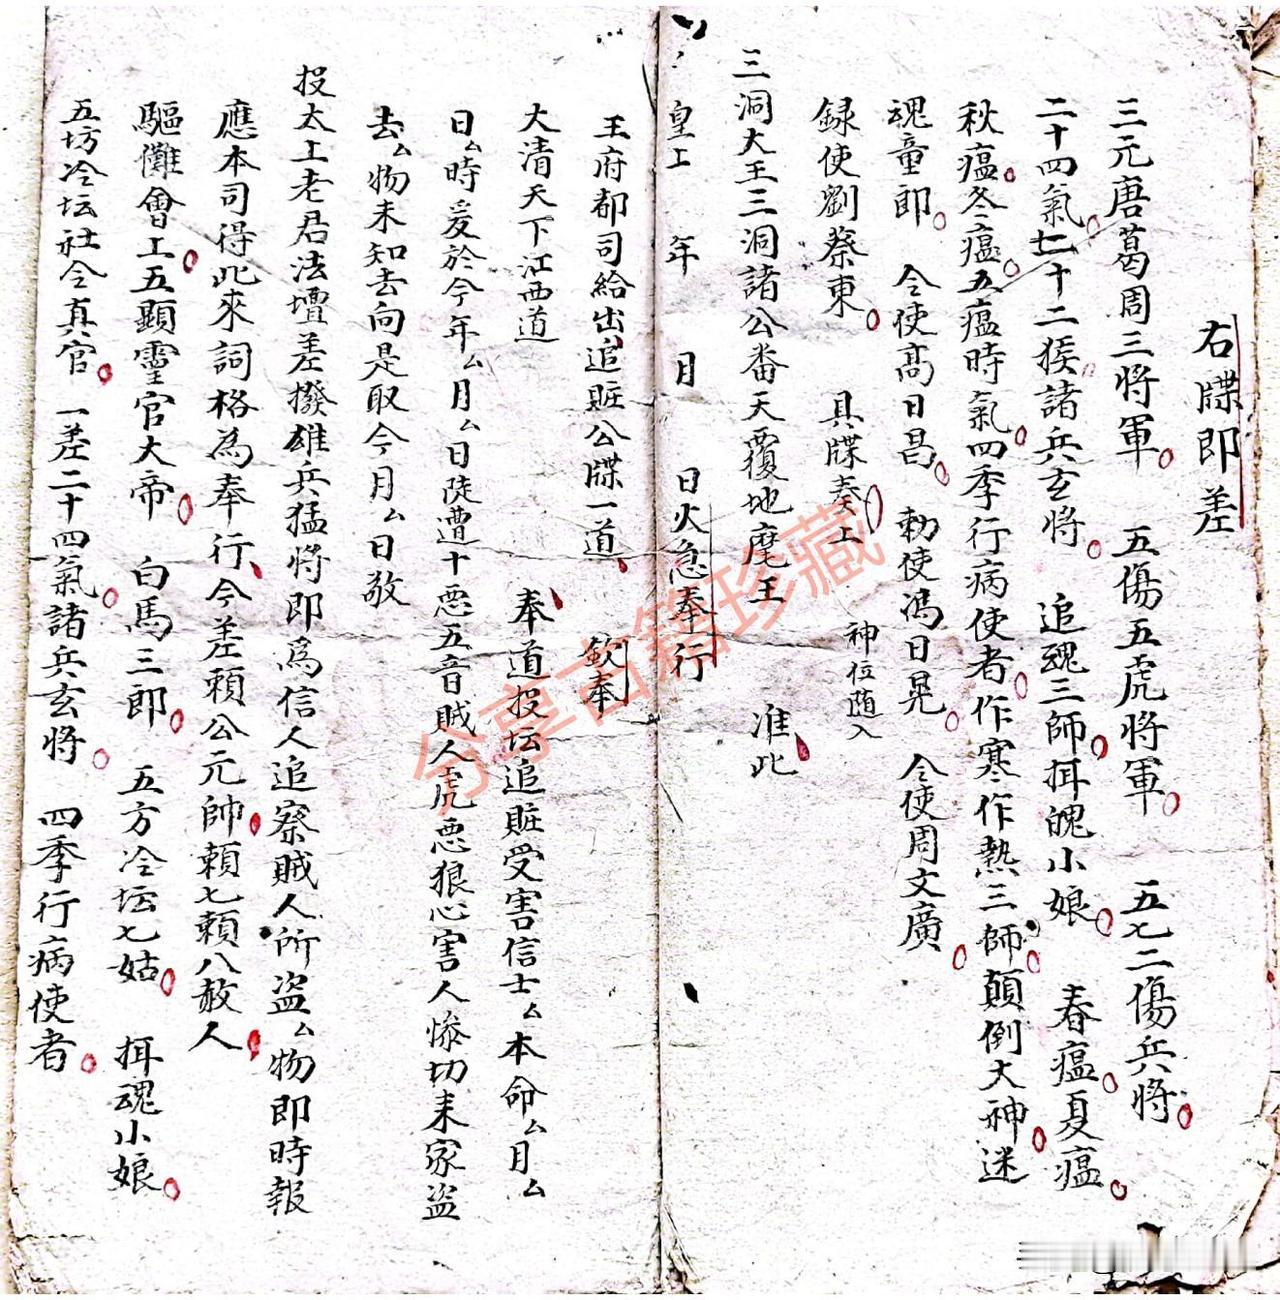 右牒即差
三元唐葛周三将軍 五傷五虎将軍 五七二傷兵将
二十四氣七十二猴諸兵玄将 追魂三師 揖魄小娘 春瘟夏瘟
秋瘟冬瘟五瘟時氣四季行病使者作寒作熱三師顛倒大神迷
魂童郎 令使髙日昌 勅使馮日晃 令使周文廣
録使劉蔡東 具牒奏上 神位随入
三洞大王三洞諸公番天覆地魔王 准此
皇上 年 月 日火急奉行
王府都司給出追賍公牒一道 欽奉
大清天下江西道 奉道投坛追賍受害信士厶本命厶月厶
日厶時爰於今年厶月厶日陡遭十悪五音賊人虎悪狼心害人慘切来家盗
去厶物未知去向是取今月厶日敬
投太上老君法壇差撥雄兵猛将即為信人追察賊人所盗厶物即時報
應本司得此來詞格為奉行今差頼公元帥頼七頼八赦人
驅儺會上五顯靈官大帝 白馬三郎 五方冷坛七姑 揖魂小娘
五坊冷坛社令真官 一差二十四氣諸兵玄将 四季行病使者
分享古籍珍藏